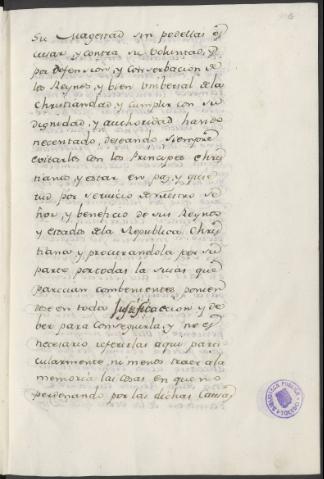 Su Magestad sin podellas es
cusar, y contra su Voluntad, y
por defension, y Conserbacion de
los Reynos, y bien Vnibersal de la
Christiandad y Cumplir con su
dignidad, y authoridad han sido
necentado, deseando siempre
evitarles con los Principes Chris
tianos y estar en paz, y quie
tud por servicio de nuestro se
ñor, y beneficio de sus Reynos
y estados de la Republica Chris
tiana y procurandola por su
parte por todas la suias que
parecian combenientes ponien
dose en toda Justificaccion y de
ber para Conseguirla, y no es
necesario referirlas aqui parti
cularmente, ni menos traer a la
memoria las Cosas en que
perdonando por las dichas Causas
BIBLIOTECA PUBLICA